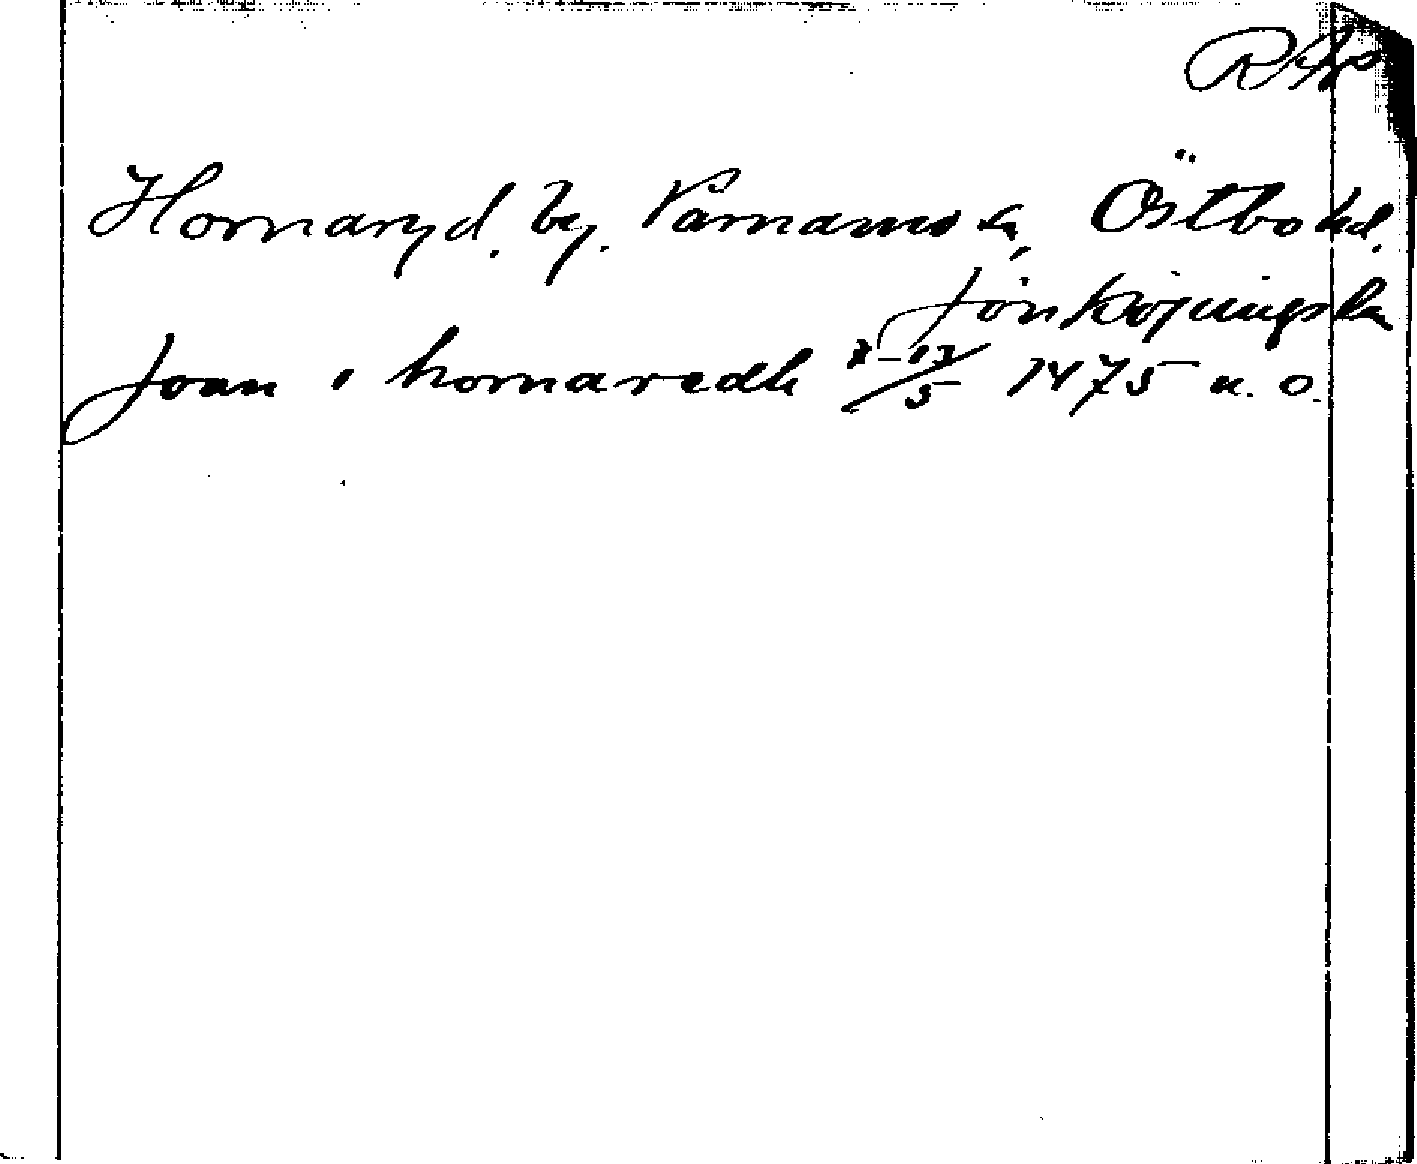 RAp
Hornaryd. by. Värnamo sn, Östbo hd.
Jönköpings län
Joan i hornaredh 8-13/5 1475 u. o.